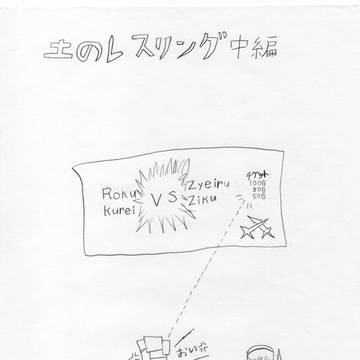 土のレスリング中編
Roku Kurei
VS
Zyeiru Ziku
チケット
100G
80G
50G
おい